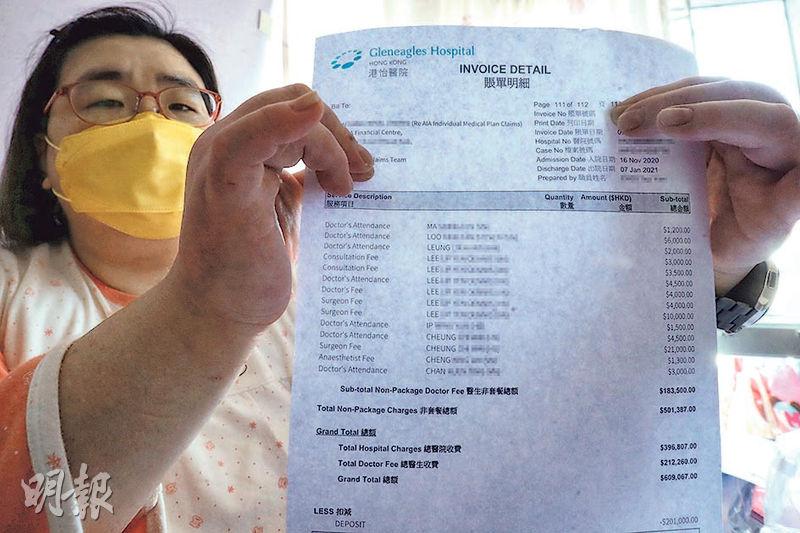 Gleneagles Hospital
HONG KONG
港怡醫院
INVOICE DETAIL
賬單明細
Page 111 of 112
Invoice No 賬單號碼
Print Date 列印日期
Invoice Date 賬單日期
Hospital No 醫院號碼
Case No 檔案號碼
Admission Date 入院日期 16 Nov 2020
Discharge Date 出院日期 07 Jan 2021
Prepared by 職員姓名
Bill To:
(Re AIA Individual Medical Plan Claims)
Financial Centre,
Claims Team
Service Description Quantity Amount ($HKD) Sub-total
服務項目 數量 金額 總金額
Doctor's Attendance MA $1,200.00
Doctor's Attendance LOO $6,000.00
Doctor's Attendance LEUNG $2,000.00
Consultation Fee LEE $3,000.00
Consultation Fee LEE $3,500.00
Doctor's Attendance LEE $4,500.00
Doctor's Fee LEE $4,000.00
Surgeon Fee LEE $4,000.00
Surgeon Fee LEE $10,000.00
Doctor's Attendance IP $1,500.00
Doctor's Attendance CHEUNG $4,500.00
Surgeon Fee CHEUNG $21,000.00
Anaesthetist Fee CHENG $1,300.00
Doctor's Attendance CHAN $3,000.00
Sub-total Non-Package Doctor Fee 醫生非套餐總額 $183,500.00
Total Non-Package Charges 非套餐總額 $501,387.00
Grand Total 總額
Total Hospital Charges 總醫院收費 $396,807.00
Total Doctor Fee 總醫生收費 $212,260.00
Grand Total 總額 $609,067.00
LESS 扣減
DEPOSIT -$201,000.00
明報